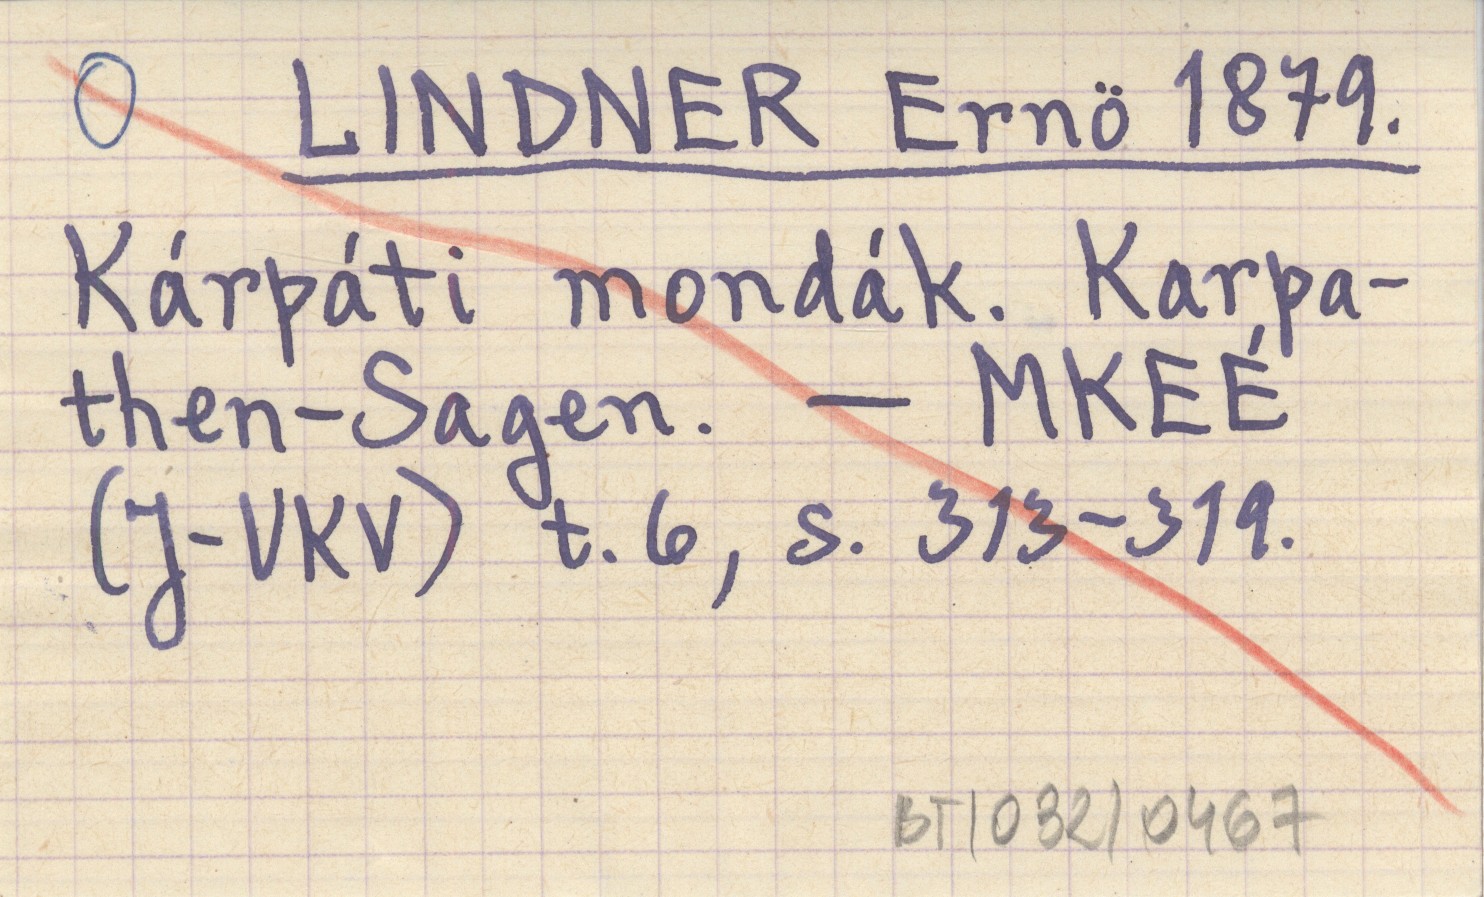 O LINDNER Ernö 1879.
Kárpáti mondák. Karpa-
then-Sagen. — MKEÉ
(J-VKV) t. 6, s. 313-319.
BT/032/0467